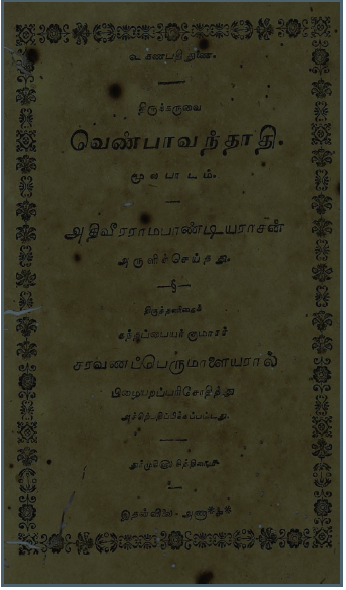 உ கணபதி துணை.
திருக்கருவை
வெண்பாவந்தாதி.
மூலபாடம்.
அதிவீரராமபாண்டியராசன்
அருளிச்செய்தது.
திருத்தணிகைக்
கந்தப்பையர் குமாரர்
சரவணப்பெருமாளையரால்
பிழையறப்பரிசோதித்து
அச்சிற் பதிப்பிக்கப்பட்டது.
இதன்விலை - அணா